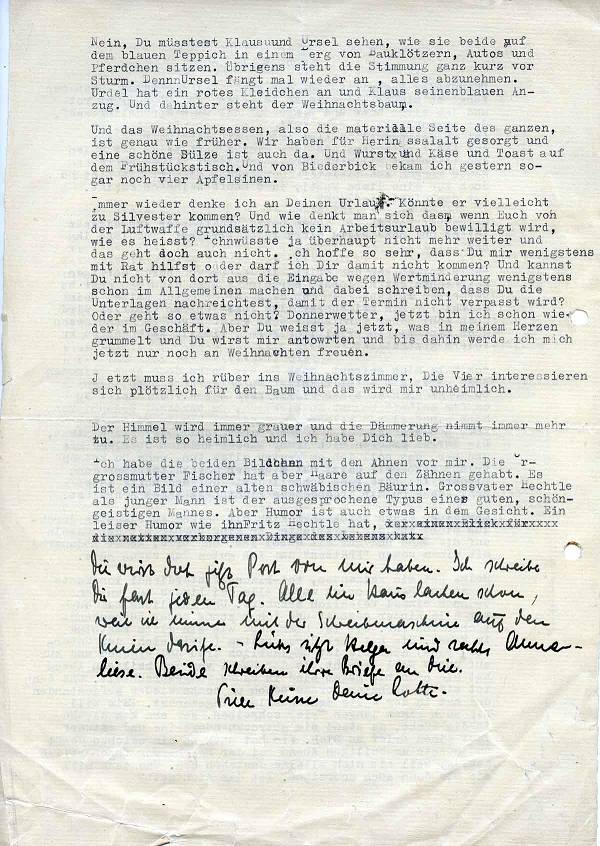 Nein, Du müsstest Klausuund Ursel sehen, wie sie beide auf
dem blauen Teppich in einem Berg von Bauklötzern, Autos und
Pferdchen sitzen. Übrigens steht die Stimmung ganz kurz vor
Sturm. DennnUrsel fängt mal wieder an , alles abzunehmen.
Urdel hat ein rotes Kleidchen an und Klaus seinenblauen An-
zug. Und dahinter steht der Weihnachtsbaum.
Und das Weihnachtsessen, also die materielle Seite des ganzen,
ist genau wie früher. Wir haben für Herin ssalalt gesorgt und
eine schöne Sülze ist auch da. Und Wurst und Käse und Toast auf
dem Frühstückstisch.Und von Biederbick bekam ich gestern so-
gar noch vier Apfelsinen.
Immer wieder denke ich an Deinen Urlaub. Könnte er vielleicht
zu Silvester kommen? Und wie denkt man sich das, wenn Euch von
der Luftwaffe grundsätzlich kein Arbeitsurlaub bewilligt wird,
wie es heisst? Ichnwüsste ja überhaupt nicht mehr weiter und
das geht doch auch nicht. Ich hoffe so sehr, dass Du mir wenigstens
mit Rat hilfst o der darf ich Dir damit nicht kommen? Und kannst
Du nicht von dort aus die Eingabe wegen Wertminderung wenigstens
schon im Allgemeinen machen und dabei schreiben, dass Du die
Unterlagen nachreichtest, damit der Termin nicht verpasst wird?
Oder geht so etwas nicht? Donnerwetter, jetzt bin ich schon wie-
der im Geschäft. Aber Du weisst ja jetzt, was in meinem Herzen
grummelt und Du wirst mir antowrten und bis dahin werde ich mich
jetzt nur noch an Weihnachten freuen.
J etzt muss ich rüber ins Weihnachtszimmer, Die Vier interessieren
sich plötzlich für den Baum und das wird mir unheimlich.
Der Himmel wird immer grauer und die Dämmerung nimmt immer mehr
zu. Es ist so heimlich und ich habe Dich lieb.
Ich habe die beiden Bildchen mit den Ahnen vor mir. Die Ur-
grossmutter Fischer hat aber Haare auf den Zähnen gehabt. Es
ist ein Bild einer alten schwäbischen Bäurin. Grossvater Hechtle
als junger Mann ist der ausgesprochene Typus eines guten, schön-
geistigen Mannes. Aber Humor ist auch etwas in dem Gesicht. Ein
leiser Humor wie ihnFritz Hechtle hat,
Du wirst dort jetzt Post von mir haben. Ich schreibe
Dir fast jeden Tag. Alle im Haus lachen schon,
weil ich immer mit der Schreibmaschine auf den
Knien sitze. - Links sitzt Helga und rechts Anne-
liese. Beide schreiben ihre Briefe an Die.
Deine Lotte.